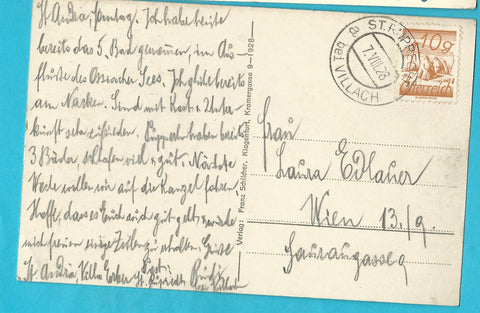 St. Andrä, Sonntag. Ich habe heute
bereits das 5. Bad genommen, im Aus-
flusse des Ossiacher Sees. Ich glühe bereits
am Nacken. Sind mit Kost u. Unter-
kunft sehr zufrieden. haben bereits
3 Bäder, schlafen viel u. gut. Nächste
Woche wollen wir auf die Kanzel fahren.
Hoffe, dass es Euch auch gut geht u. würde
mich freuen einige Zeilen zu erhalten. Grüße
St. Andrä, Villa St. Ruprecht
bei Villach
Verlag: Franz Schilcher, Klagenfurt, Kramergasse 9 —1928—
ST. RUPPRECHT
bei VILLACH
7.VIII.28
10g
Österreich
Frau
Laura Edlauer
Wien 13./9.